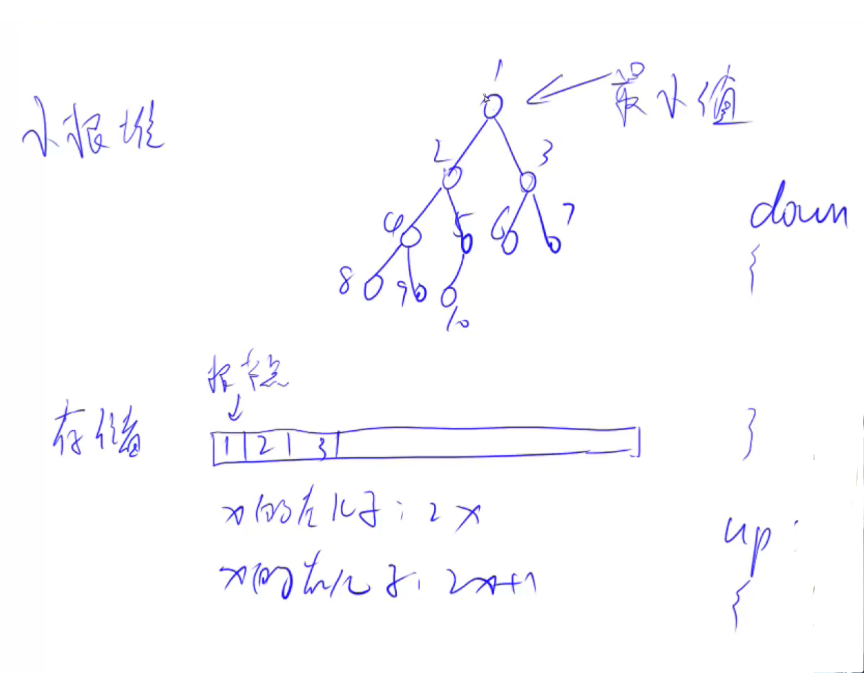 小根堆
最小值
1
2 3
4 5 6 7
8 9 10
down
{
}
根节点
存储 1 2 3
x的左儿子: 2x
x的右儿子: 2x+1
up:
{